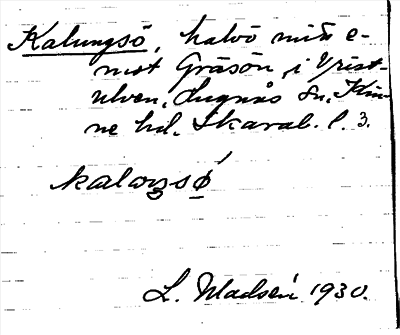 Kalungsö, halvö mitt e-
mot Gråsön, i Vrist-
ulven, Lugnås sn, Kin-
ne hd. Skarab. l. 3.
kalaŋsö́
L. Madsén 1930.